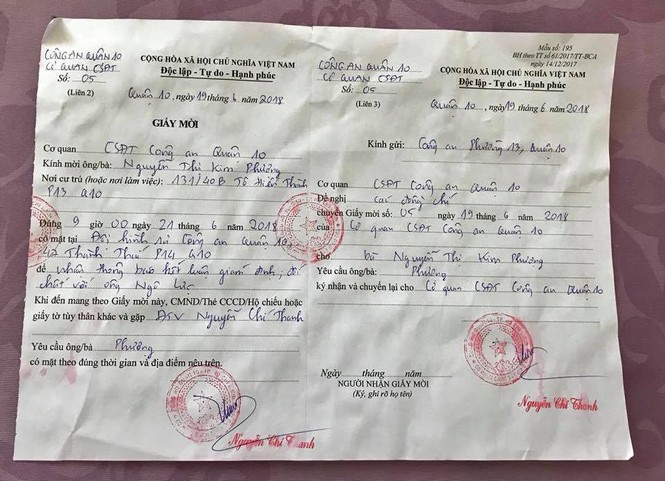 CÔNG AN QUẬN 10
CƠ QUAN CSĐT
Số: 05
(Liên 2)
CỘNG HÒA XÃ HỘI CHỦ NGHĨA VIỆT NAM
Độc lập - Tự do - Hạnh phúc
Quận 10, ngày 19 tháng 6 năm 2018
GIẤY MỜI
Cơ quan CSĐT Công an Quận 10
Kính mời ông/bà: Nguyễn Thị Kim Phượng
Nơi cư trú (hoặc nơi làm việc): 131/40B Tô Hiến Thành
P13 Q10
Đúng 9 giờ 00 ngày 21 tháng 6 năm 2018
có mặt tại Đội hình sự Công an Quận 10,
47 Thành Thái P14 Q10
để nhận thông báo kết luận giám định; đối
chất với ông Ngô
Khi đến mang theo Giấy mời này, CMND/Thẻ CCCD/Hộ chiếu hoặc
giấy tờ tùy thân khác và gặp ĐTV Nguyễn Chí Thanh
Yêu cầu ông/bà Phượng
có mặt theo đúng thời gian và địa điểm nêu trên.
Nguyễn Chí Thanh
Mẫu số: 195
BH theo TT số 61/2017/TT-BCA
ngày 14/12/2017
CÔNG AN QUẬN 10
CƠ QUAN CSĐT
Số: 05
(Liên 3)
CỘNG HÒA XÃ HỘI CHỦ NGHĨA VIỆT NAM
Độc lập - Tự do - Hạnh phúc
Quận 10, ngày 19 tháng 6 năm 2018
Kính gửi: Công an Phường 13, Quận 10
Cơ quan CSĐT Công an Quận 10
Đề nghị các đồng chí
chuyển Giấy mời số: 05 ngày 19 tháng 6 năm 2018
của Cơ quan CSĐT Công an Quận 10
cho bà Nguyễn Thị Kim Phượng
Yêu cầu ông/bà Phượng
ký nhận và chuyển lại cho Cơ quan CSĐT Công an Quận 10
Ngày tháng năm
NGƯỜI NHẬN GIẤY MỜI
(Ký, ghi rõ họ tên)
Nguyễn Chí Thanh